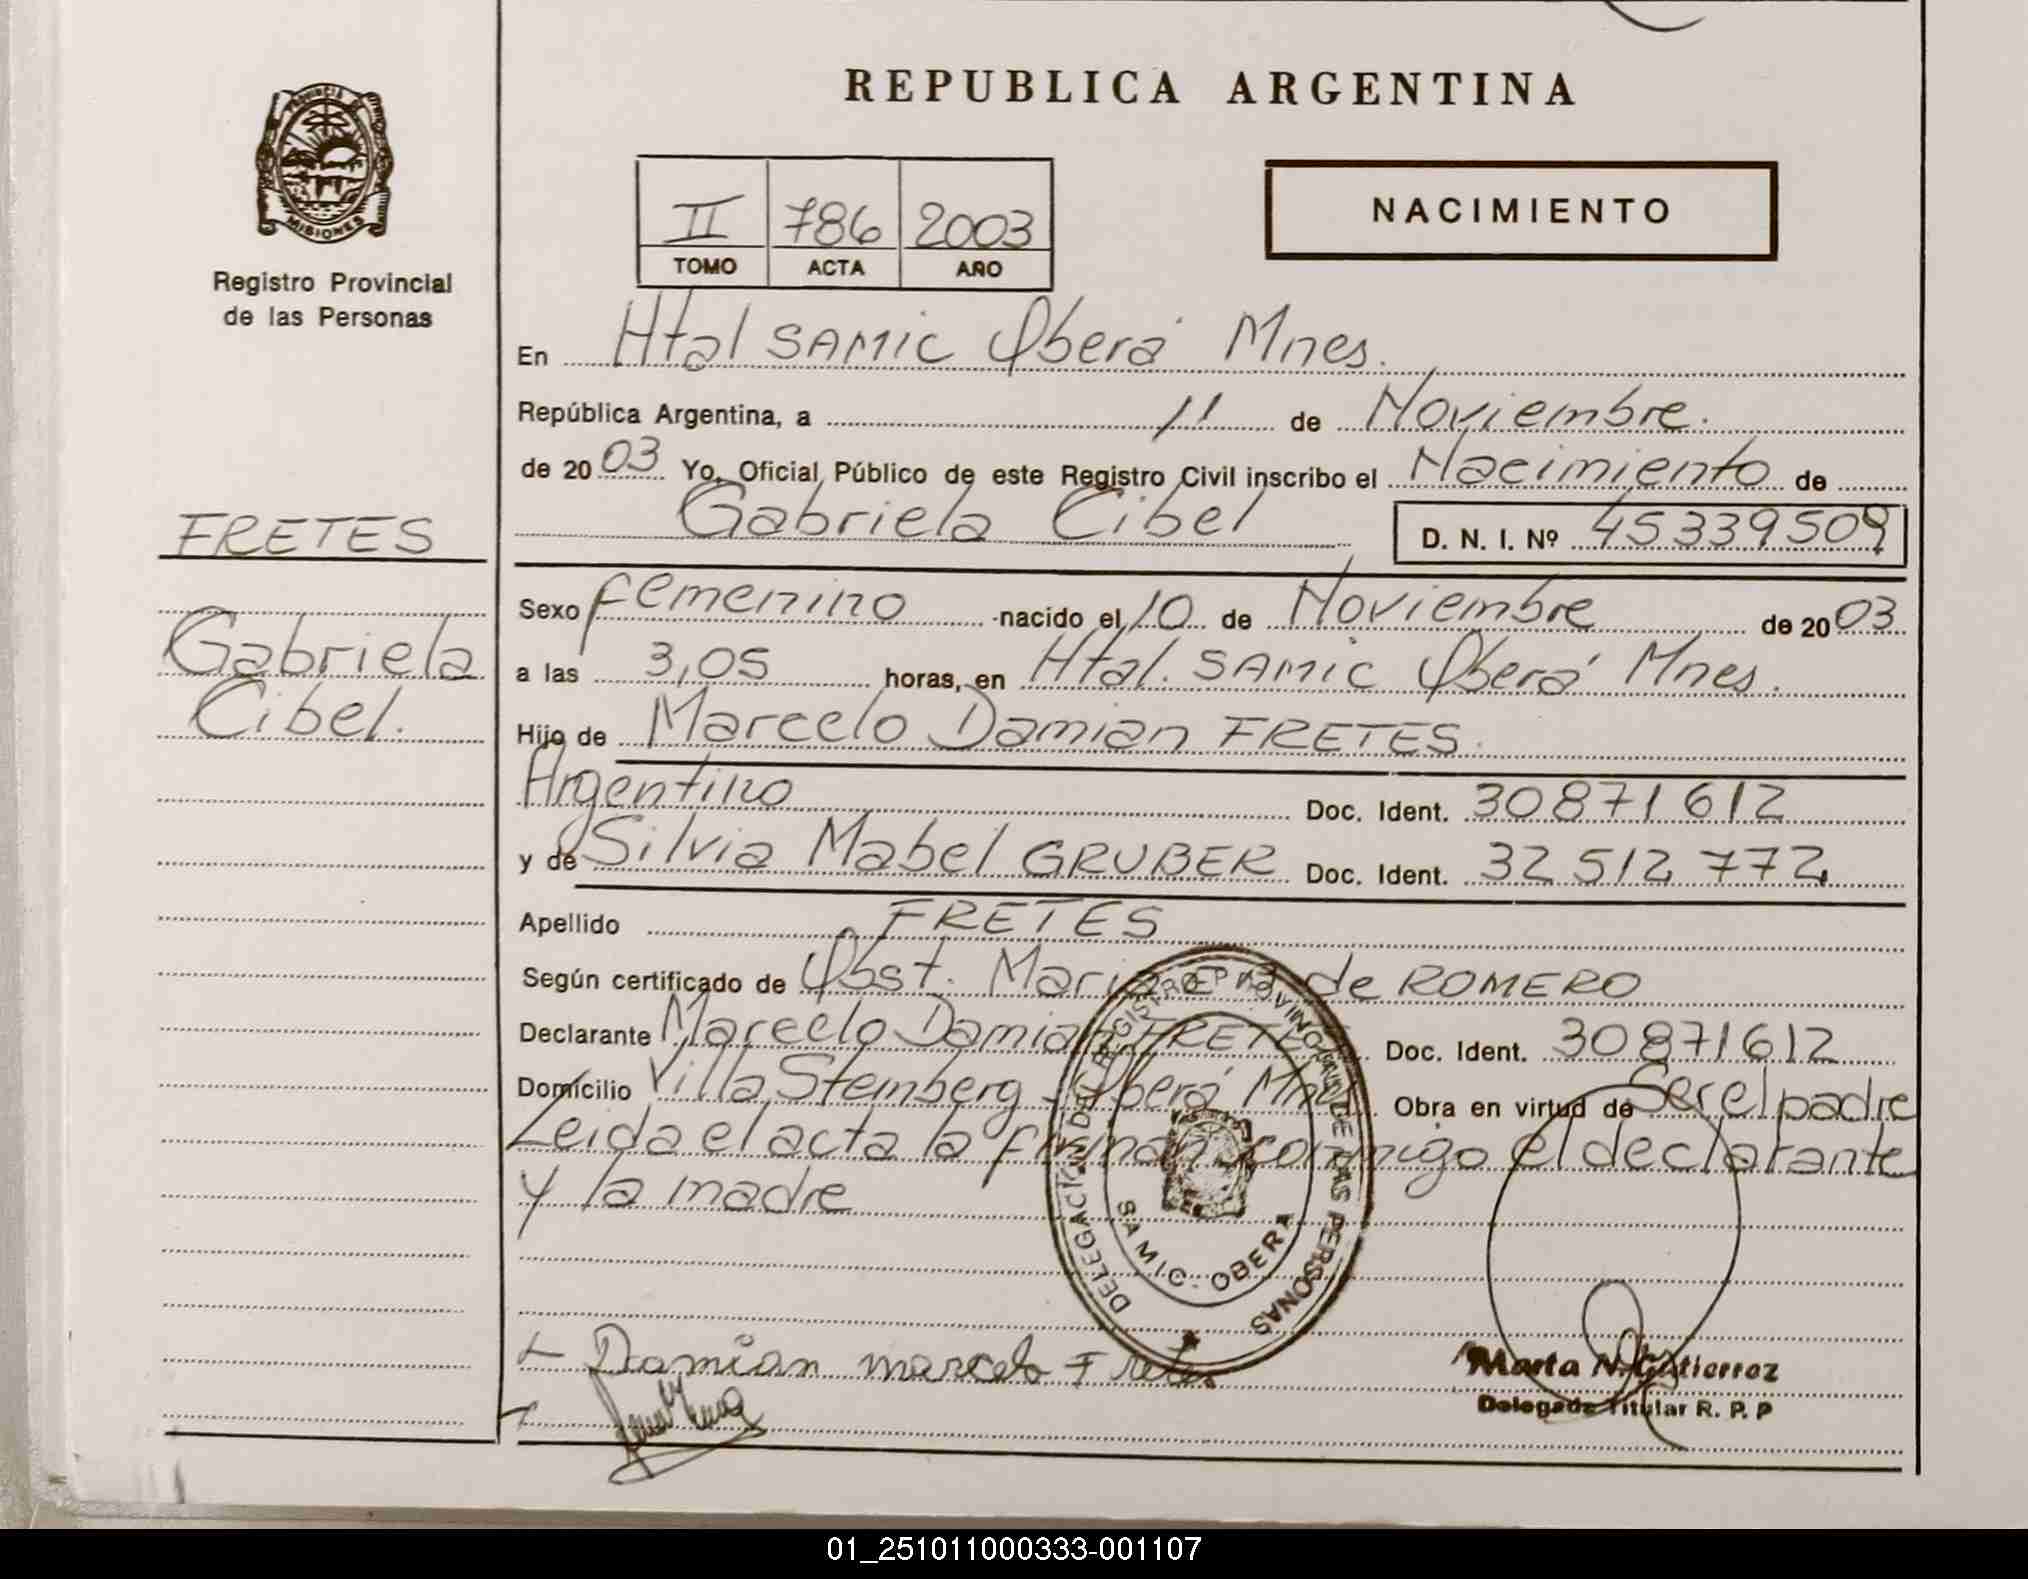 REPUBLICA ARGENTINA
PROVINCIA DE
MISIONES
Registro Provincial
de las Personas
II 786 2003
TOMO ACTA AÑO
NACIMIENTO
En Htal SAMIC Oberá Mnes.
República Argentina, a 11 de Noviembre.
de 2003 Yo, Oficial Público de este Registro Civil inscribo el Nacimiento de
Gabriela Cibel D. N. I. Nº 45339509
FRETES
Gabriela
Cibel.
Sexo femenino nacido el 10 de Noviembre de 2003
a las 3,05 horas, en Htal. SAMIC Oberá Mnes.
Hijo de Marcelo Damian FRETES.
Argentino Doc. Ident. 30871612
y de Silvia Mabel GRUBER Doc. Ident. 32512772
Apellido FRETES
Según certificado de Obst. Maria de ROMERO
Declarante Marcelo Damian FRETES Doc. Ident. 30871612
Domicilio Villa Stemberg Oberá Mnes Obra en virtud de Ser el padre
Leida el acta la firman conmigo el declarante
y la madre
DELEGACIÓN DEL REGISTRO PROVINCIAL DE LAS PERSONAS
SAMIC - OBERA
Damian marcelo Frete
Marta N. Gutierrez
Delegada Titular R. P. P
01_251011000333-001107